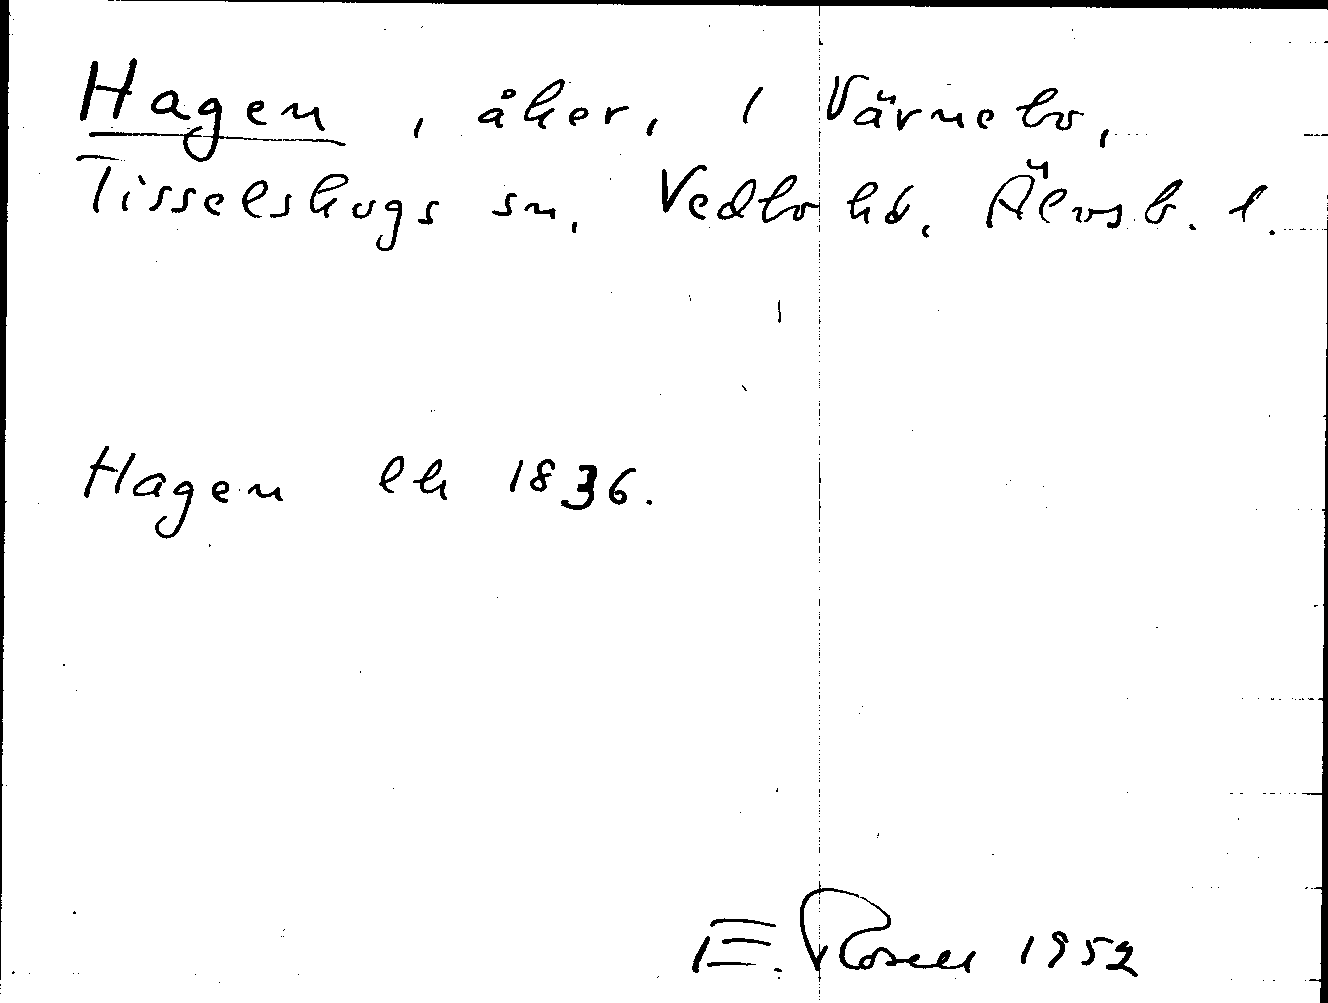 Hagen, åker, 1 Värnebo,
Tisselskogs sn, Vedbo hd, Älvsb. l.
Hagen lk 1836.
E. Rosell 1952